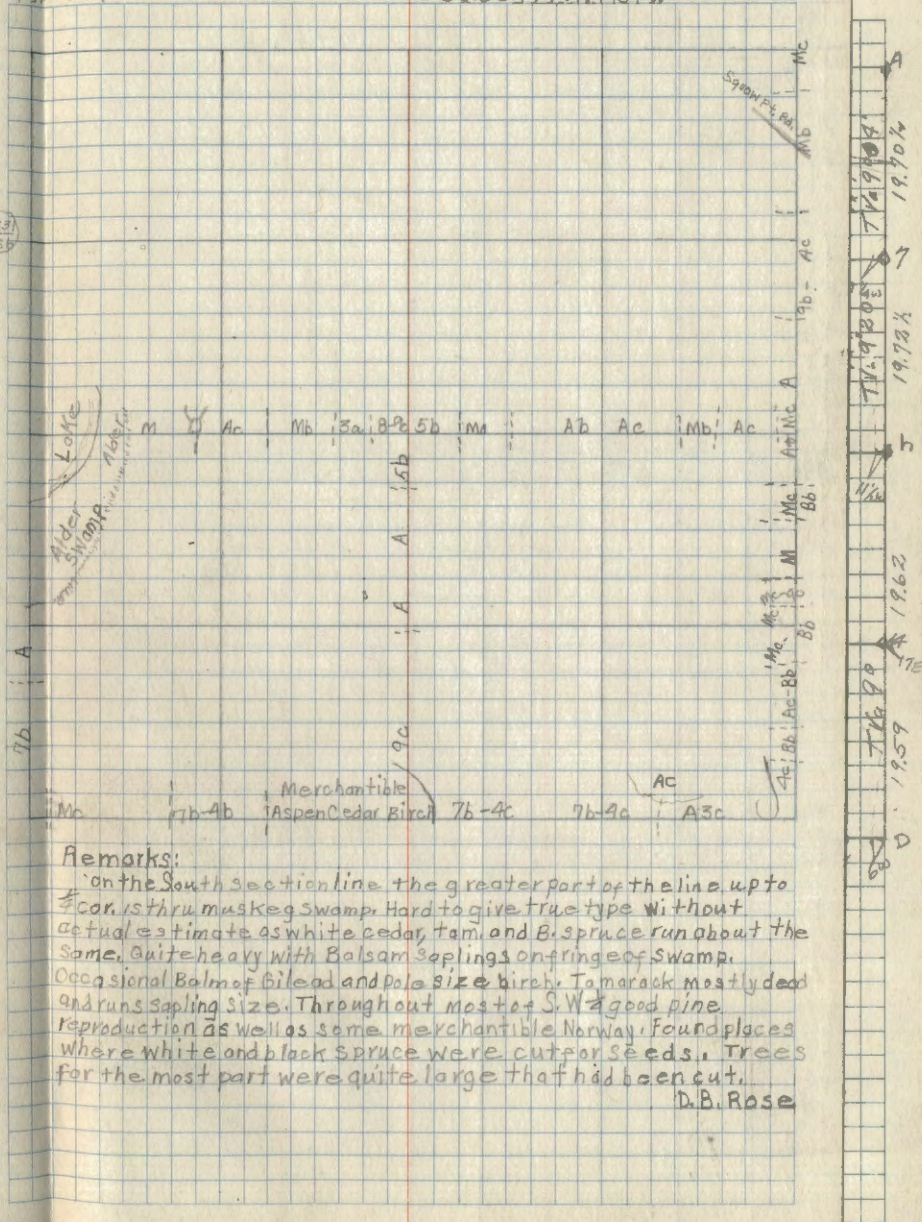 Mc
Squaw Pt. Rd.
Mb
Ac
9b-
A
Mc
Ab
Lake
Alder
M
Ac
Mb
3a
8-9c
5b
Ma
Ab
Ac
Mb
Ac
5b
Mc
Bb
Alder
Swamp
A
M
A
Mc
Bb
A
Mc
Bb
Ac-
7b
9c
Bb
4c
Merchantible
AC
Mc
7b-4b
Aspen Cedar Birch
7b-4c
7b-4c
A3c
Remarks:
On the South section line the greater part of the line up to
¼ cor. is thru muskeg swamp. Hard to give true type without
actual estimate as white cedar, tam. and B. spruce run about the
same. Quite heavy with Balsam saplings on fringe of swamp.
Occasional Balm of Gilead and pole size birch. Tamarack mostly dead
and runs sapling size. Throughout most of S.W ¼ good pine
reproduction as well as some merchantible Norway. Found places
where white and black spruce were cut for seeds. Trees
for the most part were quite large that had been cut.
D.B. Rose
A
19.70½
7
19.72½
J
19.62
A
17E
19.59
D